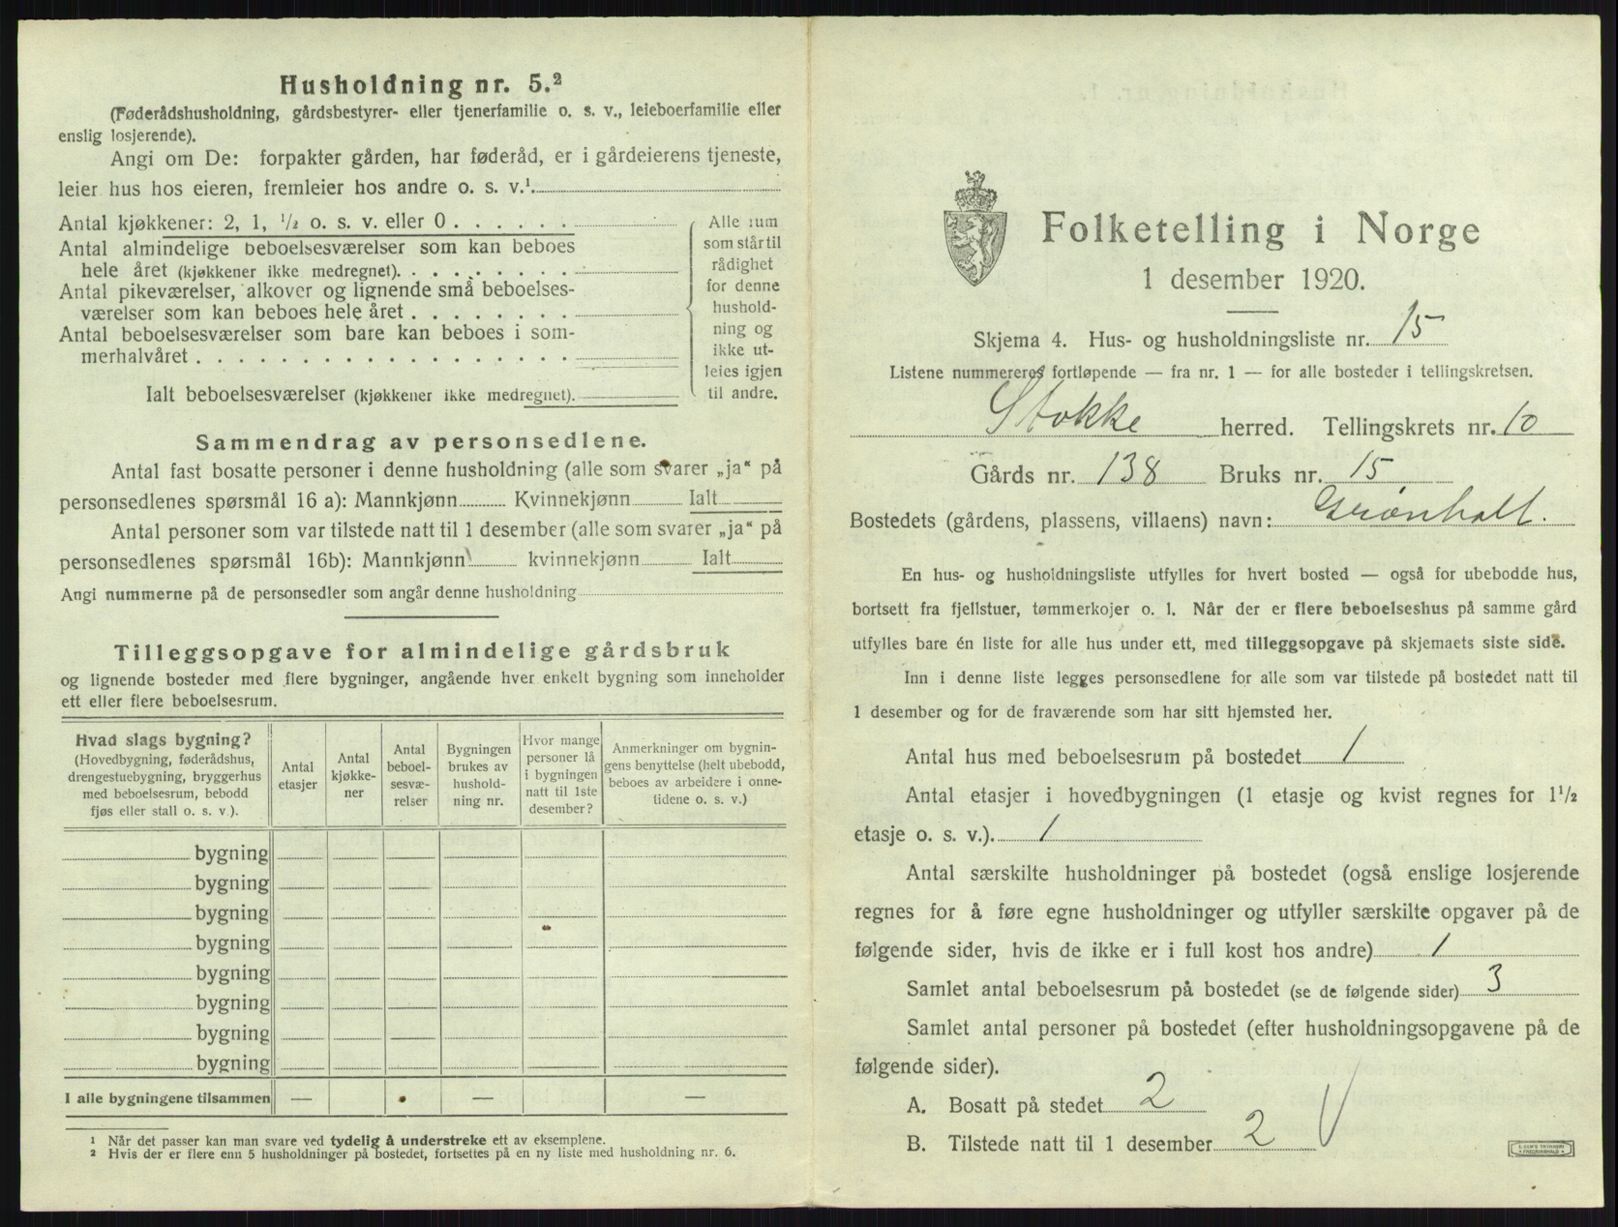 Husholdning nr. 5.²
(Føderådshusholdning, gårdsbestyrer- eller tjenerfamilie o. s. v., leieboerfamilie eller
enslig losjerende).
Angi om De: forpakter gården, har føderåd, er i gårdeierens tjeneste,
leier hus hos eieren, fremleier hos andre o. s. v.¹
Antal kjøkkener: 2, 1, ½ o. s. v. eller 0
Antal almindelige beboelsesværelser som kan beboes
hele året (kjøkkener ikke medregnet).
Antal pikeværelser, alkover og lignende små beboelses-
værelser som kan beboes hele året
Antal beboelsesværelser som bare kan beboes i som-
merhalvåret
Ialt beboelsesværelser (kjøkkener ikke medregnet).
Alle rum
som står til
rådighet
for denne
hushold-
ning og
ikke ut-
leies igjen
til andre.
Sammendrag av personsedlene.
Antal fast bosatte personer i denne husholdning (alle som svarer „ja“ på
personsedlenes spørsmål 16 a): Mannkjønn Kvinnekjønn Ialt
Antal personer som var tilstede natt til 1 desember (alle som svarer „ja“ på
personsedlenes spørsmål 16b): Mannkjønn kvinnekjønn Ialt
Angi nummerne på de personsedler som angår denne husholdning
Tilleggsopgave for almindelige gårdsbruk
og lignende bosteder med flere bygninger, angående hver enkelt bygning som inneholder
ett eller flere beboelsesrum.
Hvad slags bygning?
(Hovedbygning, føderådshus,
drengestuebygning, bryggerhus
med beboelsesrum, bebodd
fjøs eller stall o. s. v.).
Antal
etasjer
Antal
kjøkke-
ner
Antal
beboel-
sesvæ-
relser
Bygningen
brukes av
hushold-
ning nr.
Hvor mange
personer lå
i bygningen
natt til 1ste
desember?
Anmerkninger om bygnin-
gens benyttelse (helt ubebodd,
beboes av arbeidere i onne-
tidene o. s. v.)
bygning
bygning
bygning
bygning
bygning
bygning
bygning
bygning
I alle bygningene tilsammen — — —
¹ Når det passer kan man svare ved tydelig å understreke ett av eksemplene.
² Hvis der er flere enn 5 husholdninger på bostedet, fortsettes på en ny liste med husholdning nr. 6.
Folketelling i Norge
1 desember 1920.
Skjema 4. Hus- og husholdningsliste nr. 15
Listene nummereres fortløpende — fra nr. 1 — for alle bosteder i tellingskretsen.
Stokke herred. Tellingskrets nr. 10
Gårds nr. 138 Bruks nr. 15
Bostedets (gårdens, plassens, villaens) navn: Grønholt.
En hus- og husholdningsliste utfylles for hvert bosted — også for ubebodde hus,
bortsett fra fjellstuer, tømmerkojer o. l. Når der er flere beboelseshus på samme gård
utfylles bare én liste for alle hus under ett, med tilleggsopgave på skjemaets siste side.
Inn i denne liste legges personsedlene for alle som var tilstede på bostedet natt til
1 desember og for de fraværende som har sitt hjemsted her.
Antal hus med beboelsesrum på bostedet 1
Antal etasjer i hovedbygningen (1 etasje og kvist regnes for 1½
etasje o. s. v.). 1
Antal særskilte husholdninger på bostedet (også enslige losjerende
regnes for å føre egne husholdninger og utfyller særskilte opgaver på de
følgende sider, hvis de ikke er i full kost hos andre) 1
Samlet antal beboelsesrum på bostedet (se de følgende sider) 3
Samlet antal personer på bostedet (efter husholdningsopgavene på de
følgende sider).
A. Bosatt på stedet 2
B. Tilstede natt til 1 desember 2